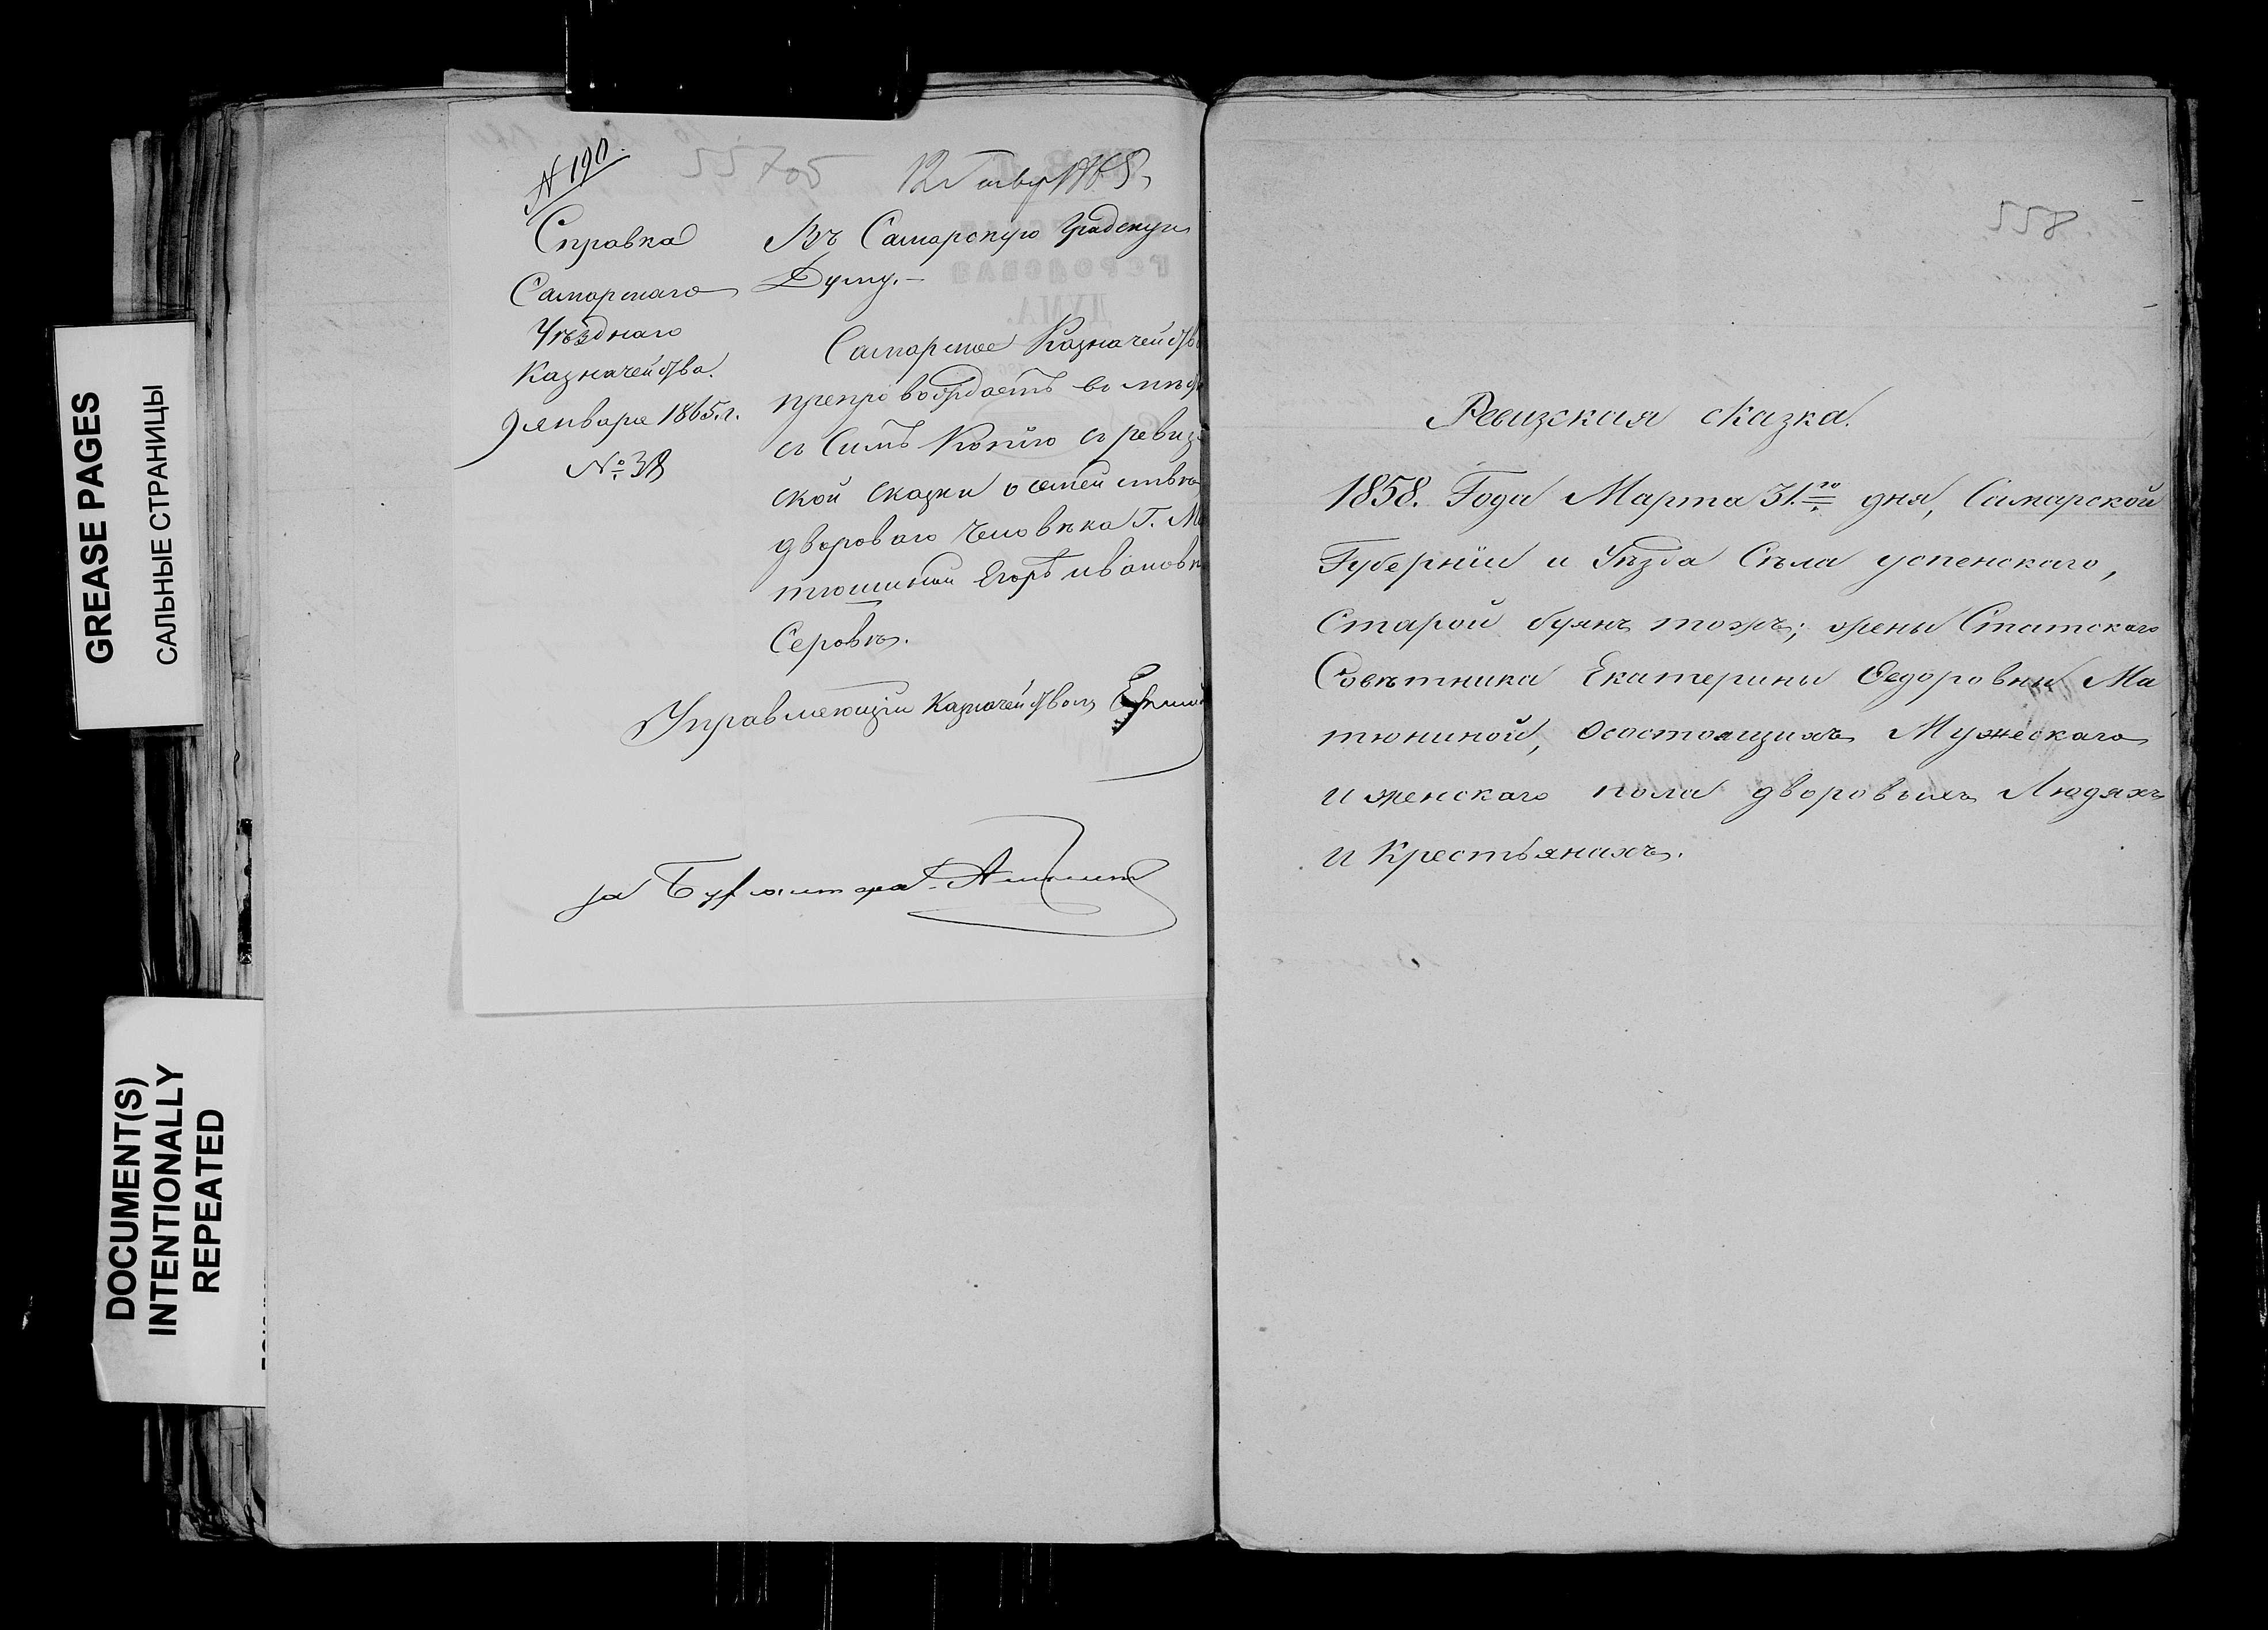 GREASE PAGES
САЛЬНЫЕ СТРАНИЦЫ
DOCUMENT(S)
INTENTIONALLY
REPEATED
N 190.
12 Генвар 1865
Справка
Самарскаго
Уѣзднаго
Казначейства.
9 января 1865 г.
№ 38
Въ Самарскую Градскую
Думу.-
Самарское Казначейство
препровождаетъ вмѣстѣ
съ симъ копію съ ревиз
ской сказки о семействѣ
двороваго человѣка Г. Ма
тюниной Егорѣ Ивановѣ
Серовѣ.
Управляющій Казначействомъ
за Бухгалтера
ГОРОДСКАЯ
ДУМА.
558
Ревизская сказка.
1858. Года Марта 31.го дня, Самарской
Губерніи и Уѣзда Съла успенскаго,
Старой буянъ тожъ; жены Статскаго
Совѣтника Екатерины Ѳедоровны Ма
тюниной, Осостоящихъ Мужескаго
и женскаго пола дворовыхъ Людяхъ
и Крестьянахъ.